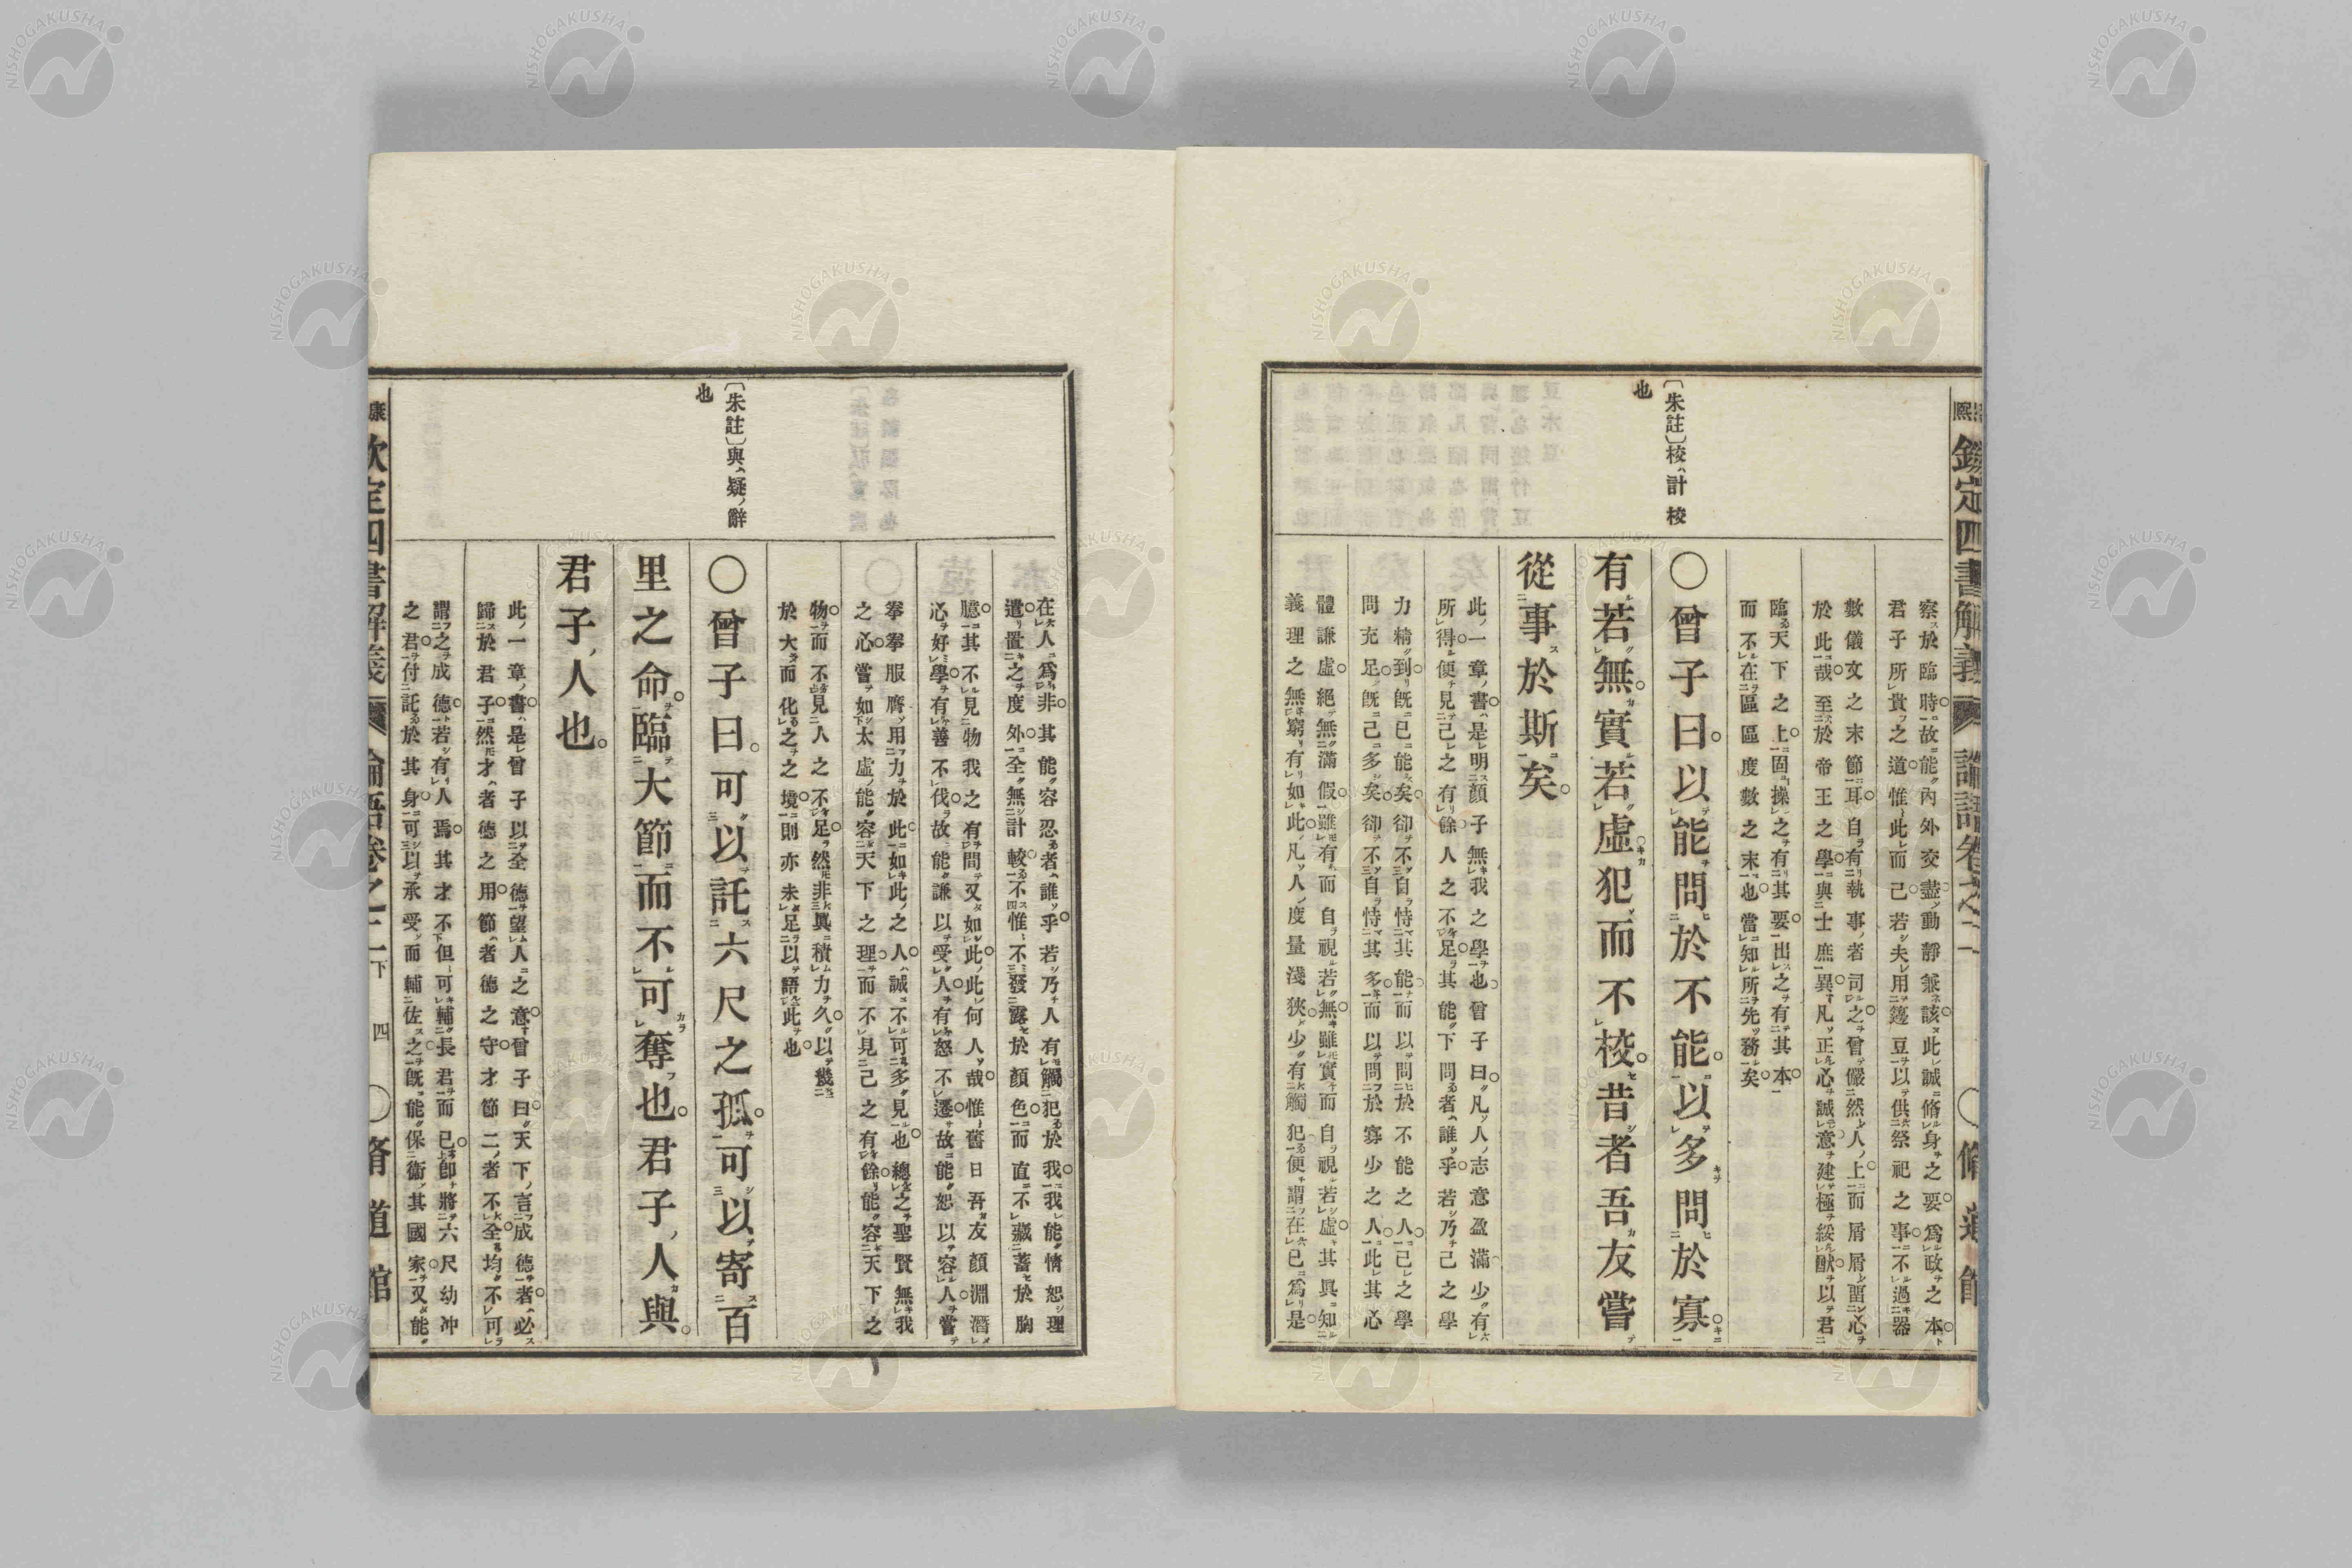 熙
欽定四書解義
論語卷之二
〇脩道館
察於臨時故能內外交盡動靜兼該此誠脩身之要爲政之本
君子所貴之道惟此而已若夫用籩豆以供祭祀之事不過器
數儀文之末節耳自有執事者司之曾儼然人上而屑屑留心
於此哉至於帝王之學與士庶異凡正心誠意建極綏猷以君
臨天下之上固操之有其要出之有其本
而不在區區度數之末也當知所先務矣
〇曾子曰。以能問於不能。以多問於寡。
有若無。實若虛。犯而不校。昔者吾友嘗
從事於斯矣。
〔朱註〕校、計校
也
此一章書是明顏子無我之學也曾子曰凡人志意盈滿少有
所得便見己之有餘人之不足其能下問者誰乎若乃己之學
力精到既已能矣卻不自恃其能而以問於不能之人己之學
問充足既已多矣卻不自恃其多而以問於寡少之人此其心
體謙虛絕無滿假雖有而自視若無雖實而自視若虛其眞知
義理之無窮有如此凡人度量淺狹少有觸犯便謂在己爲是
在人爲非其能容忍者誰乎若乃人有觸犯於我我能情恕理
遣置之度外全無計較不惟不發露於顏色而直不藏蓄於胸
臆其不見物我之有間又如此此何人哉惟舊日吾友顏淵潛
心好學有善不伐故能謙以受人有怒不遷故能恕以容人嘗
拳拳服膺用力於此如此之人誠不可多見也總之聖賢無我
之心嘗如太虛能容天下之理而不見己之有餘能容天下之
物而不見人之不足然非眞積力久以幾
於大而化之之境則亦未足以語此也
〇曾子曰。可以託六尺之孤。可以寄百
里之命。臨大節而不可奪也。君子人與。
君子人也。
〔朱註〕與、疑ノ辭
也
此一章書是曾子以全德望人之意曾子曰天下言成德者必
歸於君子然才者德之用節者德之守才節二者不全均不可
謂之成德若有人焉其才不但可輔長君而已卽將六尺幼冲
之君付託於其身可以承受而輔佐之既能保衞其國家又能
康
欽定四書解義
論語卷之二下
四
〇脩道館